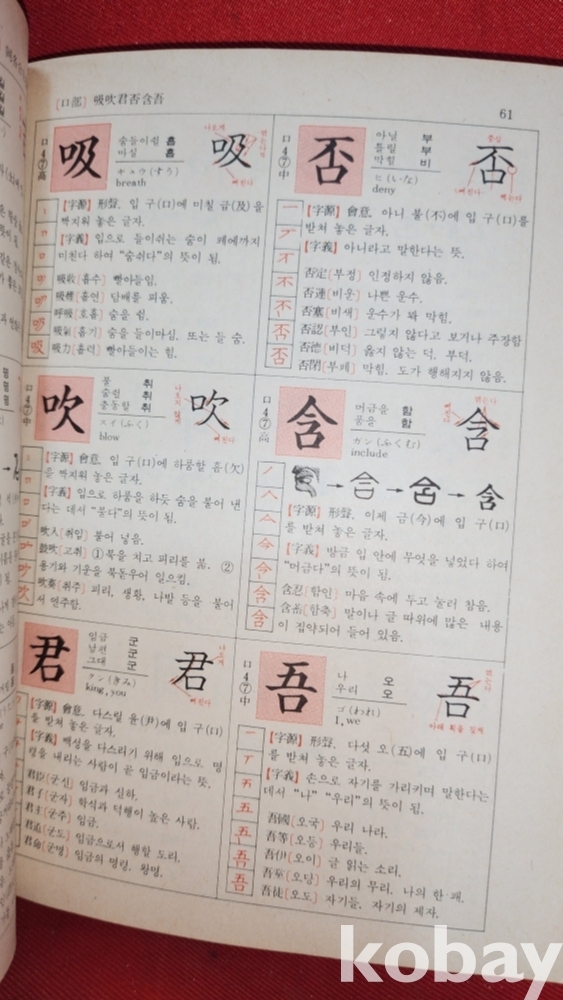 [口部] 吸吹君否含吾
61
口
4
⑦
高
吸
숨들이쉴 흡
마실 흡
キュウ(すう)
breath
吸
[字源] 形聲. 입 구(口)에 미칠 급(及)을
짝지워 놓은 글자.
[字義] 입으로 들이쉬는 숨이 폐에까지
미친다 하여 “숨쉬다”의 뜻이 됨.
吸收[흡수] 빨아들임.
吸煙[흡연] 담배를 피움.
呼吸[호흡] 숨을 쉼.
吸氣[흡기] 숨을 들이마심. 또는 들숨.
吸力[흡력] 빨아들이는 힘.
口
4
⑦
中
吹
불 취
숨쉴 취
충동할 취
スイ(ふく)
blow
吹
[字源] 會意. 입 구(口)에 하품할 흠(欠)
을 짝지워 놓은 글자.
[字義] 입으로 하품을 하듯 숨을 불어 낸
다는 데서 “불다”의 뜻이 됨.
吹入[취입] 불어 넣음.
鼓吹[고취] ①북을 치고 피리를 붊. ②
용기와 기운을 북돋우어 일으킴.
吹奏[취주] 피리, 생황, 나발 등을 불어
서 연주함.
君
임금 군
남편 군
그대 군
クン(きみ)
king, you
君
[字源] 會意. 다스릴 윤(尹)에 입 구(口)
를 받쳐 놓은 글자.
[字義] 백성을 다스리기 위해 입으로 명
령을 내리는 사람이 곧 임금이라는 뜻.
君臣[군신] 임금과 신하.
君子[군자] 학식과 덕행이 높은 사람.
君主[군주] 임금.
君道[군도] 임금으로서 행할 도리.
君命[군명] 임금의 명령. 왕명.
口
4
⑦
中
否
아닐 부
틀릴 부
막힐 비
ヒ(いな)
deny
否
[字源] 會意. 아니 불(不)에 입 구(口)를
받쳐 놓은 글자.
[字義] 아니라고 말한다는 뜻.
否定[부정] 인정하지 않음.
否運[비운] 나쁜 운수.
否塞[비색] 운수가 꽉 막힘.
否認[부인] 그렇지 않다고 보거나 주장함
否德[비덕] 옳지 않는 덕. 부덕.
否閉[부폐] 막힘. 도가 행해지지 않음.
口
4
⑦
高
含
머금을 함
품을 함
ガン(ふくむ)
include
含
→ → → 含
[字源] 形聲. 이제 금(今)에 입 구(口)
를 받쳐 놓은 글자.
[字義] 방금 입 안에 무엇을 넣었다 하여
“머금다”의 뜻이 됨.
含忍[함인] 마음 속에 두고 눌러 참음.
含蓄[함축] 말이나 글 따위에 많은 내용
이 집약되어 들어 있음.
口
4
⑦
中
吾
나 오
우리 오
ゴ(われ)
I, we
吾
[字源] 形聲. 다섯 오(五)에 입 구(口)
를 받쳐 놓은 글자.
[字義] 손으로 자기를 가리키며 말한다는
데서 “나” “우리”의 뜻이 됨.
吾國[오국] 우리 나라.
吾等[오등] 우리들.
吾伊[오이] 글 읽는 소리.
吾黨[오당] 우리의 무리. 나의 한 패.
吾徒[오도] 자기들. 자기의 제자.
kobay